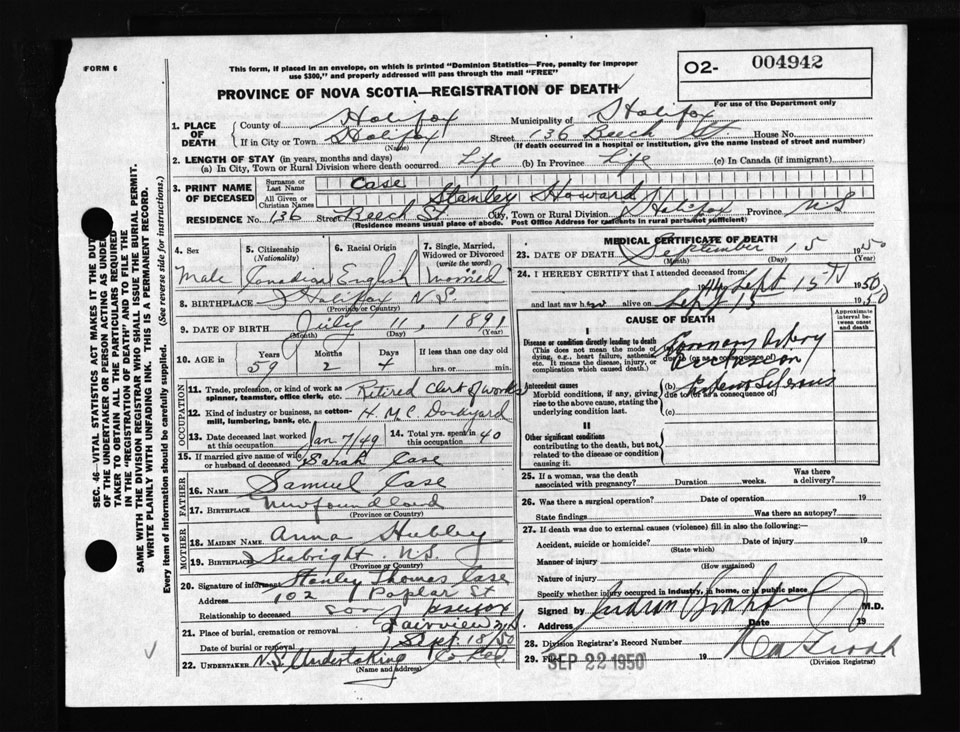 FORM 6
This form, if placed in an envelope, on which is printed "Dominion Statistics—Free, penalty for improper
use $300," and properly addressed will pass through the mail "FREE"
PROVINCE OF NOVA SCOTIA—REGISTRATION OF DEATH
O2- 004942
For use of the Department only
1. PLACE OF DEATH
County of Halifax Municipality of Halifax
If in City or Town Halifax Street 136 Beech St House No.
(Name) (If death occurred in a hospital or institution, give the name instead of street and number)
2. LENGTH OF STAY (in years, months and days)
(a) In City, Town or Rural Division where death occurred Life (b) In Province Life (c) In Canada (if immigrant)
3. PRINT NAME OF DECEASED
Surname or Last Name Case
All Given or Christian Names Stanley Howard
RESIDENCE No. 136 Street Beech St City, Town or Rural Division Halifax Province N S
(Residence means usual place of abode. Post Office Address for residents in rural parts not sufficient)
4. Sex
Male
5. Citizenship
(Nationality)
Canadian
6. Racial Origin
English
7. Single, Married,
Widowed or Divorced
(write the word)
Married
8. BIRTHPLACE Halifax N.S.
(Province or Country)
9. DATE OF BIRTH July 11, 1891
(Month) (Day) (Year)
10. AGE in Years Months Days If less than one day old
59 2 4 hrs. or min.
OCCUPATION
11. Trade, profession, or kind of work as
spinner, teamster, office clerk, etc. Retired Clerk of works
12. Kind of industry or business, as cotton-
mill, lumbering, bank, etc. H.M.C Dockyard
13. Date deceased last worked
at this occupation Jan 7/49
14. Total yrs. spent in
this occupation 40
15. If married give name of wife
or husband of deceased Sarah Case
FATHER
16. NAME Samuel Case
17. BIRTHPLACE Newfoundland
(Province or Country)
MOTHER
18. MAIDEN NAME Anna Hubley
19. BIRTHPLACE Seabright. N.S.
(Province or Country)
20. Signature of informant Stanley Thomas Case
Address 102 Poplar St
Relationship to deceased son Halifax
21. Place of burial, cremation or removal Fairview
Date of burial or removal Sept. 18/50
22. UNDERTAKER N.S. Undertaking Co Ltd
(Name and address)
MEDICAL CERTIFICATE OF DEATH
23. DATE OF DEATH September 15 1950
(Month) (Day) (Year)
24. I HEREBY CERTIFY that I attended deceased from:
Sept 15th 1950
and last saw h alive on Sept 15 1950
CAUSE OF DEATH
Approximate interval between onset and death
I
Disease or condition directly leading to death
(This does not mean the mode of dying, e.g., heart failure, asthenia, etc. It means the disease, injury, or complication which caused death.)
Coronary Artery
due to (or as a consequence of)
Occlusion
Antecedent causes
Morbid conditions, if any, giving rise to the above cause, stating the underlying condition last.
(b)
due to (or as a consequence of)
(c)
II
Other significant conditions
contributing to the death, but not related to the disease or condition causing it.
25. If a woman, was the death
associated with pregnancy? Duration weeks. Was there a delivery?
26. Was there a surgical operation? Date of operation 19
State findings Was there an autopsy?
27. If death was due to external causes (violence) fill in also the following:—
Accident, suicide or homicide? Date of injury 19
(State which)
Manner of injury
(How sustained)
Nature of injury
Specify whether injury occurred in industry, in home, or in public place
Signed by M.D.
Address Date 19
28. Division Registrar's Record Number
29. Filed SEP 22 1950 19
(Division Registrar)
SEC. 46—VITAL STATISTICS ACT MAKES IT THE DUTY
OF THE UNDERTAKER OR PERSON ACTING AS UNDER-
TAKER TO OBTAIN ALL THE PARTICULARS REQUIRED
IN THE "REGISTRATION OF DEATH" AND TO FILE THE
SAME WITH THE DIVISION REGISTRAR WHO SHALL ISSUE THE BURIAL PERMIT.
WRITE PLAINLY WITH UNFADING INK. THIS IS A PERMANENT RECORD.
Every item of information should be carefully supplied. (See reverse side for instructions.)